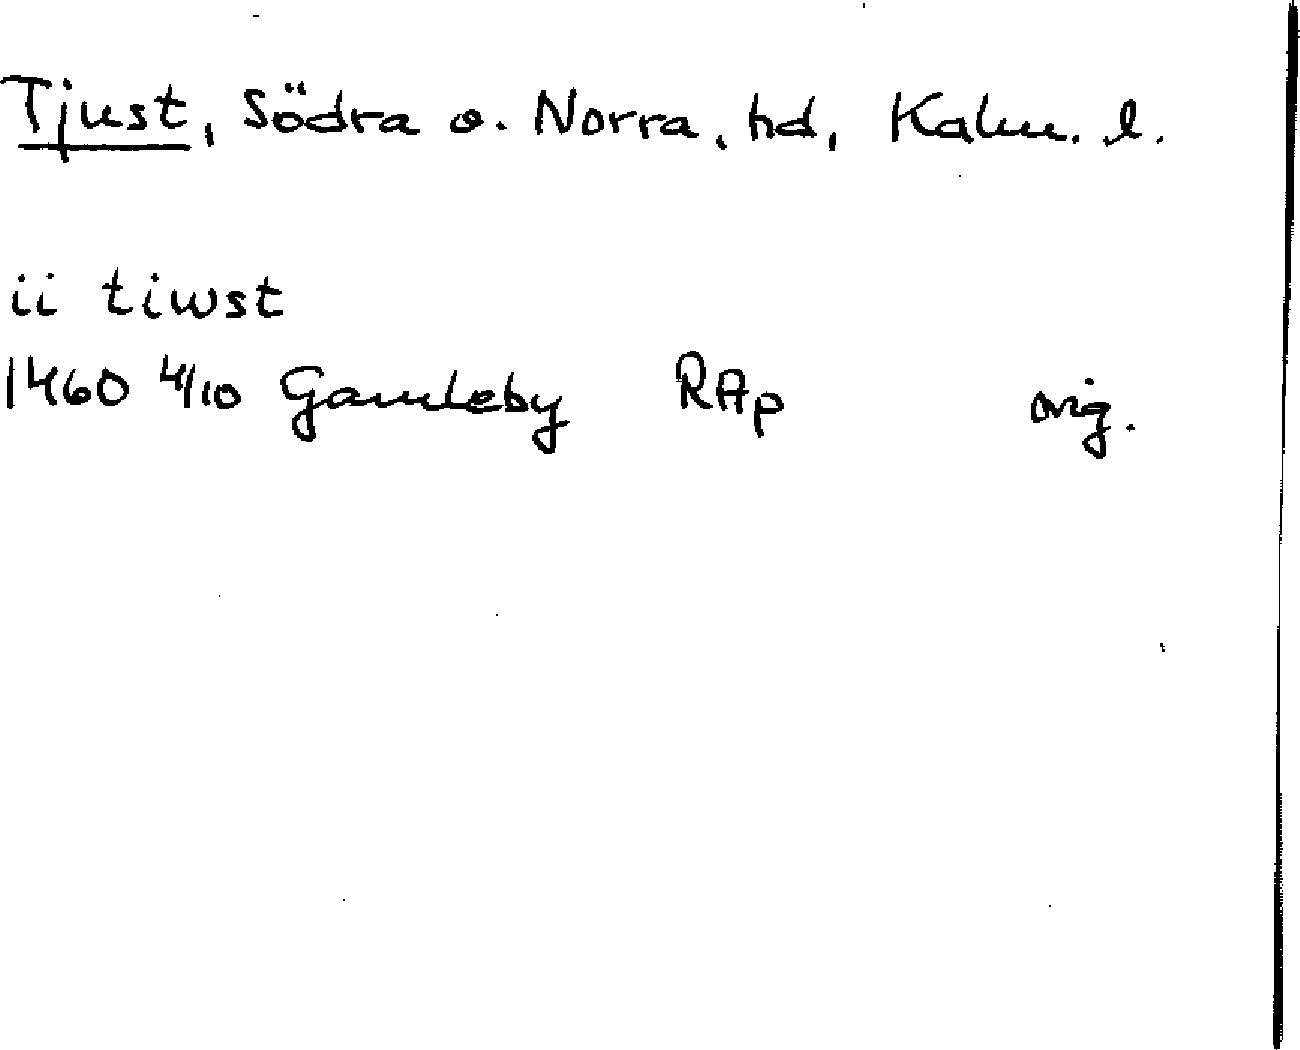 Tjust, Södra o. Norra, hd, Kalm. l.
ii tiwst
1460 4/10 Gamleby RAp orig.